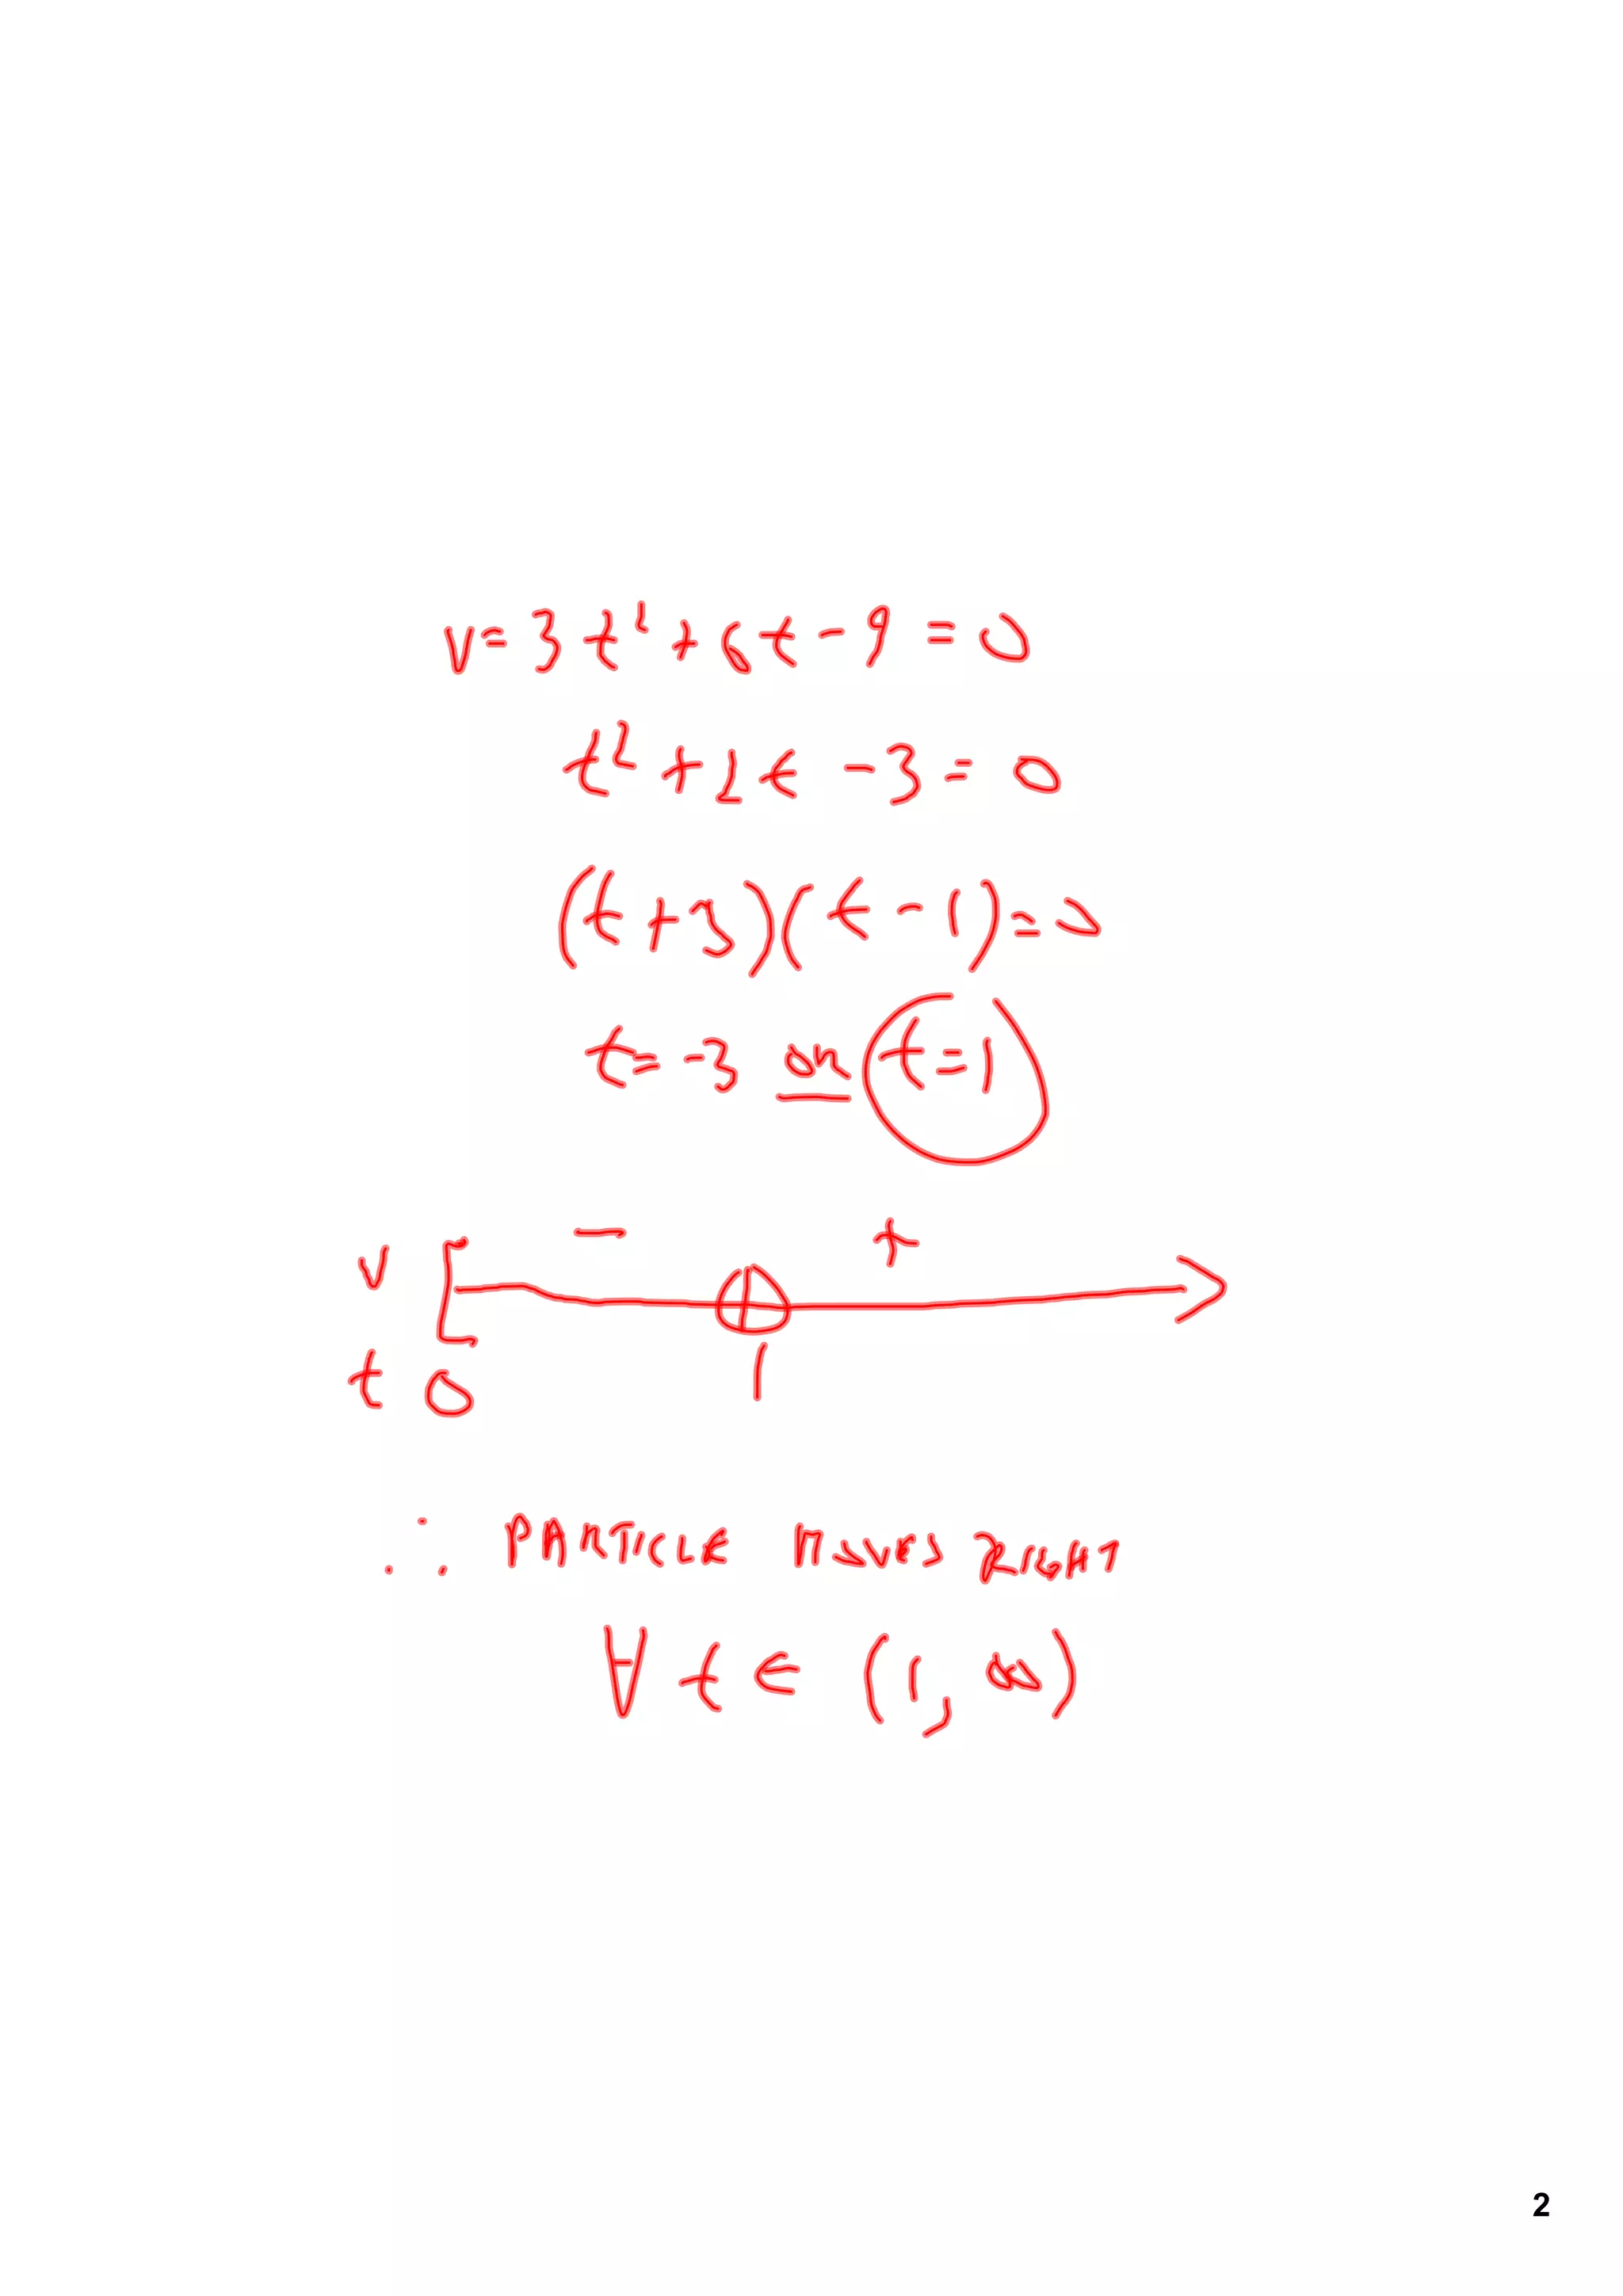 v = 3t² + 6t - 9 = 0
t² + 2t - 3 = 0
(t + 3)(t - 1) = 0
t = -3 or t = 1
- +
v
t 0 1
∴ PARTICLE MOVES RIGHT
∀ t ∈ (1, ∞)
2